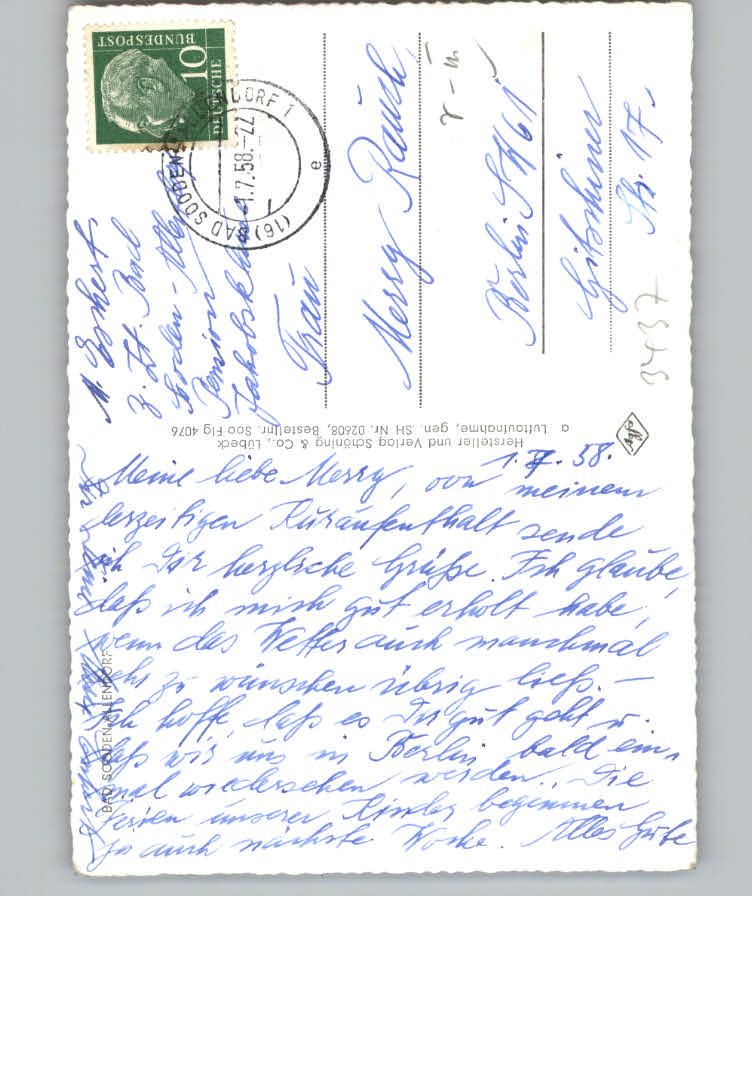 DEUTSCHE
BUNDESPOST
10
(16) BAD SOODEN-ALLENDORF 1
1.7.58.-22
e
z. Zt. Bad
Sooden-Allendorf
Pension
Frau
Merry Rauch
Berlin SW 61
Gitschiner
Str. 17.
3437
Hersteller und Verlag Schöning & Co., Lübeck
a Luftaufnahme, gen. SH Nr. 02608, Bestellnr. Soo Flg 4076
BAD SOODEN-ALLENDORF
1.7.58.
Meine liebe Merry, von meinem
derzeitigen Kuraufenthalt sende
ich Dir herzliche Grüße. Ich glaube,
daß ich mich gut erholt habe,
wenn das Wetter auch manchmal
sehr zu wünschen übrig ließ. –
Ich hoffe, daß es Dir gut geht u.
daß wir uns in Berlin bald ein-
mal wiedersehen werden. Die
Ferien unserer Kinder beginnen
ja auch nächste Woche. Alles Gute